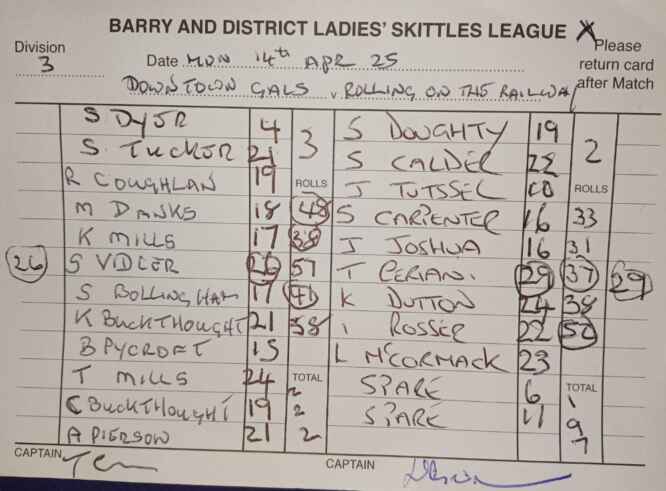 BARRY AND DISTRICT LADIES' SKITTLES LEAGUE X Please
Division return card
3 Date MON 14th APR 25 after Match
DOWNTOWN GALS v ROLLING ON THE RAILWAY
S DYER 4 3 S DOUGHTY 19 2
S. TUCKER 21 S CALDER 22
R COUGHLAN 19 ROLLS J TUTSSEL 10 ROLLS
M DANKS 18 48 S CARPENTER 16 33
K MILLS 17 38 J JOSHUA 16 31
26 S VIDLER 26 57 T CERIAN. 29 37 29
S BOLLINGHAM 17 41 K DUTTON 24 38
K BUCKTHOUGHT 21 38 I ROSSER 22 52
B PYCROFT 15 L McCORMACK 23
T MILLS 24 TOTAL SPARE 6 TOTAL
C BUCKTHOUGHT 19 2 2 SPARE 11 1 9
A PIERSON 21 2 7
CAPTAIN CAPTAIN